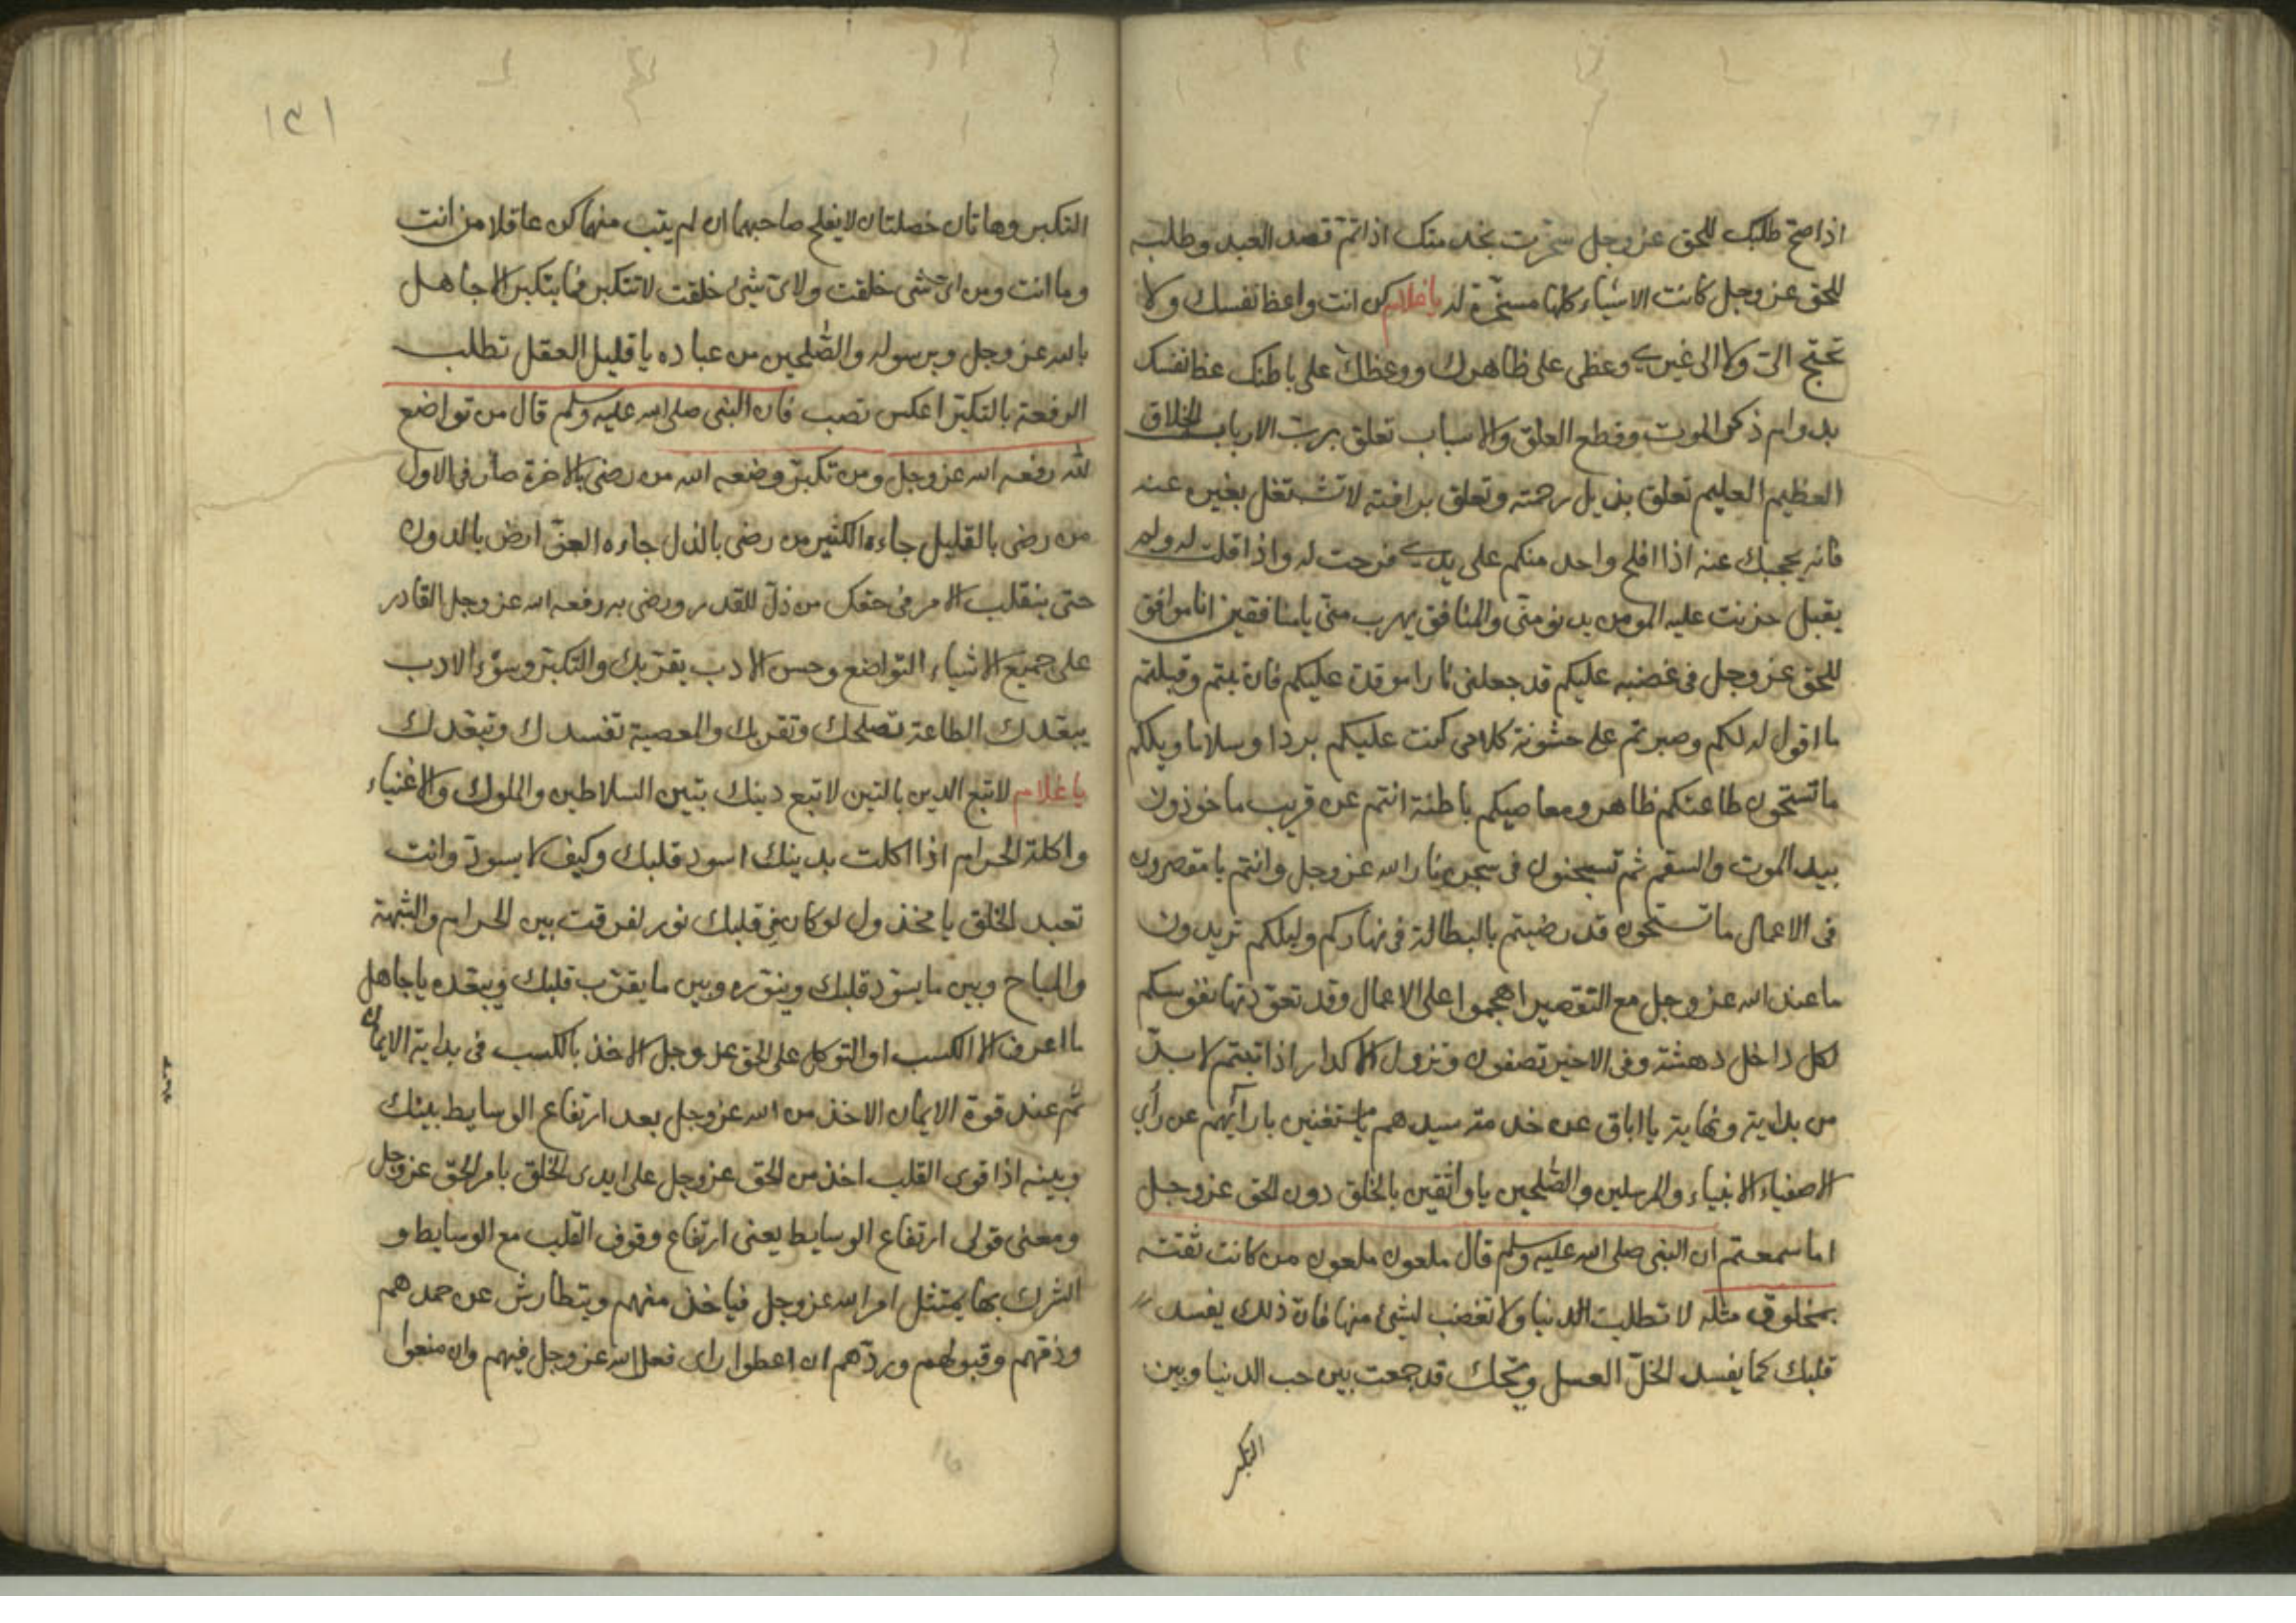 اذا صح طلبك للحق عز وجل سخرت بخدمتك اذا تم قصد العبد وطلبه
للحق عز وجل كانت الاشياء كلها مسخرة له يا غلام كن انت واعظ نفسك ولا
تحتج الي ولا الى غيري وعظي على ظاهرك ووعظك على باطنك عظ نفسك
بدوام ذكر الموت وقطع العلق والاسباب تعلق برب الارباب الخلاق
العظيم العليم تعلق بذيل رحمته وتعلق برافته لا تشتغل بغيره عنه
فانه يحجبك عنه اذا افلح واحد منكم على يدي فرحت له واذا قلت له ولم
يقبل حزنت عليه المومن يدنو مني والمنافق يهرب مني يا منافقين انا موافق
للحق عز وجل في غضبه عليكم قد جعلني نارا موقدة عليكم فان تبتم وقبلتم
ما اقول له لكم وصبرتم على خشونة كلامي كنت عليكم بردا وسلاما ويلكم
ما تستحون طاعتكم ظاهر ومعاصيكم باطنة انتم عن قريب ماخوذون
بيد الموت والسقم ثم تسجنون في سجن نار الله عز وجل وانتم يا مقصرون
في الاعمال ما تستحون قد رضيتم بالبطالة في نهاركم وليلكم تريدون
ما عند الله عز وجل مع التقصير اهجموا على الاعمال وقد تعودتها نفوسكم
لكل داخل دهشة وفي الاخير تصفون وتزول الاكدار اذا تبتم لا بد
من بداية ونهاية يا اباق عن خدمة سيدهم يا مستغنين بارائهم عن راي
الاصفياء الانبياء والمرسلين والصلحين يا واثقين بالخلق دون الحق عز وجل
اما سمعتم ان النبي صلى الله عليه وسلم قال ملعون ملعون من كانت ثقته
بمخلوق مثله لا تطلب الدنيا ولا تغضب لشئ منها فان ذلك يفسد
قلبك كما يفسد الخل العسل ويحك قد جمعت بين حب الدنيا وبين
التكبر
١٢١
التكبر وهاتان خصلتان لا يفلح صاحبهما ان لم يتب منهما كن عاقلا من انت
وما انت ومن اي شئ خلقت ولاي شئ خلقت لا تتكبر فما يتكبر الا جاهل
بالله عز وجل وبرسوله والصلحين من عباده يا قليل العقل تطلب
الرفعة بالتكبر اعكس تصب فان النبي صلى الله عليه وسلم قال من تواضع
لله رفعه الله عز وجل ومن تكبر وضعه الله من رضي بالاخرة صار في الاول
من رضي بالقليل جاءه الكثير من رضي بالذل جاءه العز ارض بالدون
حتى ينقلب الامر في حقك من ذل للقدر ورضي به رفعه الله عز وجل القادر
على جميع الاشياء التواضع وحسن الادب يقربك والتكبر وسوء الادب
يبعدك الطاعة تصلحك وتقربك والمعصية تفسدك وتبعدك
يا غلام لا تبع الدين بالتين لا تبع دينك بتين السلاطين والملوك والاغنياء
واكلة الحرام اذا اكلت بدينك اسود قلبك وكيف لا يسود وانت
تعبد الخلق يا مخذول لو كان في قلبك نور لفرقت بين الحرام والشبهة
والمباح وبين ما يسود قلبك وينوره وبين ما يقرب قلبك ويبعده يا جاهل
ما اعرف الا الكسب او التوكل على الحق عز وجل الاخذ بالكسب في بداية الايمان
ثم عند قوة الايمان الاخذ من الله عز وجل بعد ارتفاع الوسايط بينك
وبينه اذا قوي القلب اخذ من الحق عز وجل على ايدي الخلق بامر الحق عز وجل
ومعنى قولي ارتفاع الوسايط يعني ارتفاع وقوف القلب مع الوسايط و
الشرك بها يمتثل امر الله عز وجل فياخذ منهم ويتطارش عن حمدهم
وذمهم وقبولهم وردهم ان اعطوا راى فعل الله عز وجل فيهم وان منعوا